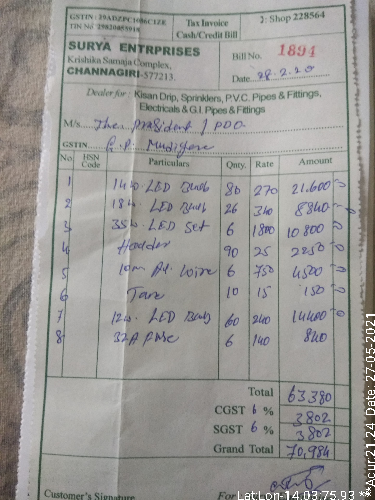 GSTIN : 29ADZPC1086C1ZE
TIN No 29820855918
Tax Invoice
Cash/Credit Bill
: Shop 228564
SURYA ENTRPRISES
Krishika Samaja Complex,
CHANNAGIRI-577213.
Bill No. 1894
Date 28.2.20
Dealer for : Kisan Drip, Sprinklers, P.V.C. Pipes & Fittings,
Electricals & G.I. Pipes & Fittings
M/s The president / PDO
GSTIN : G.P. Mudigere
No. HSN Code Particulars Qnty. Rate Amount
1 14w. LED Bulb 80 270 21.600
2 18w. LED Bulb 26 340 8840
3 35w. LED Set 6 1800 10800
4 Hodder 90 25 2250
5 10m Al. Wire 6 750 4500
6 Tare 10 15 150
7 12w. LED Bulb 60 240 14400
8 32A 6 140 840
Total 63380
CGST 6 % 3802
SGST 6 % 3802
Grand Total 70,984
Customer's Signature For
LatLon-14.03,75.93 **Acur:21.24, Date: 27-05-2021